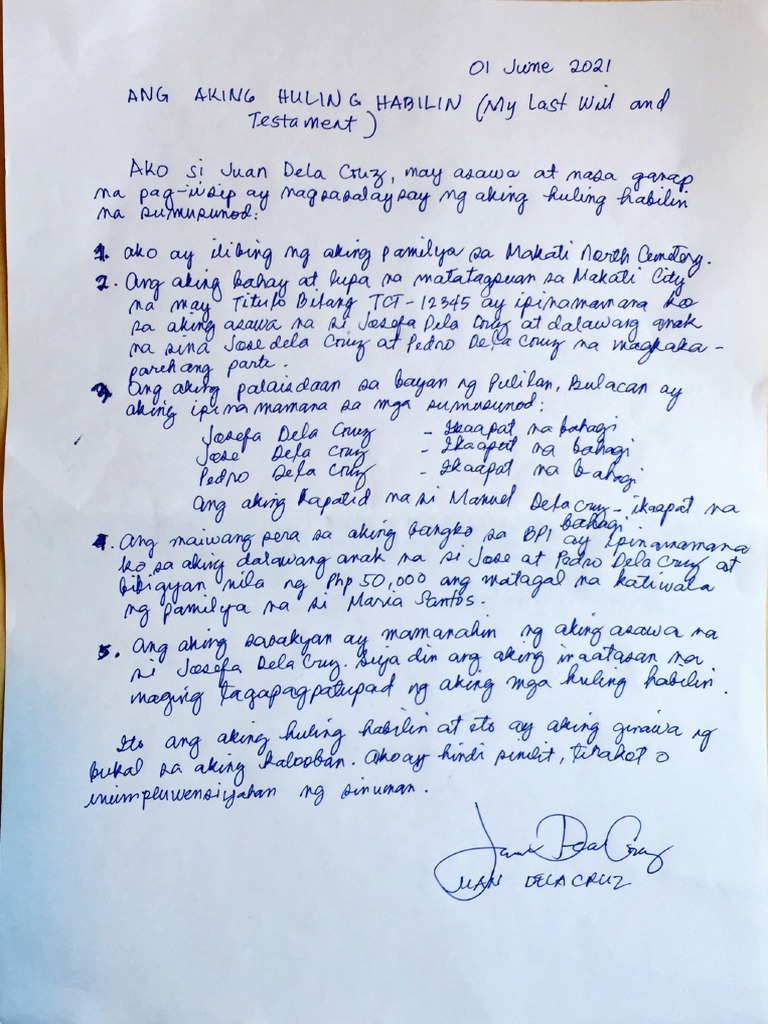 01 June 2021
ANG AKING HULING HABILIN (My Last Will and
Testament)
Ako si Juan Dela Cruz, may asawa at nasa ganap
na pag-iisip ay nagsasalaysay ng aking huling habilin
na sumusunod:
1. ako ay ilibing ng aking pamilya sa Makati North Cemetery.
2. Ang aking bahay at lupa na matatagpuan sa Makati City
na may Titulo Bilang TCT-12345 ay ipinamamana ko
sa aking asawa na si Josefa Dela Cruz at dalawang anak
na sina Jose dela Cruz at Pedro Dela Cruz na magkaka-
parehang parte.
3. Ang aking palaisdaan sa bayan ng Pulilan, Bulacan ay
aking ipinamamana sa mga sumusunod:
Josefa Dela Cruz - Ikaapat na bahagi
Jose Dela Cruz - Ikaapat na bahagi
Pedro Dela Cruz - Ikaapat na bahagi
Ang aking kapatid na si Manuel Dela Cruz - ikaapat na
bahagi
4. Ang maiwang pera sa aking bangko sa BPI ay ipinamamana
ko sa aking dalawang anak na si Jose at Pedro Dela Cruz at
bibigyan nila ng Php 50,000 ang matagal na katiwala
ng pamilya na si Maria Santos.
5. Ang aking sasakyan ay mamanahin ng aking asawa na
si Josefa Dela Cruz. Siya din ang aking inaatasan na
maging tagapagpatupad ng aking mga huling habilin.
Ito ang aking huling habilin at ito ay aking ginawa ng
bukal sa aking kalooban. Ako ay hindi pinilit, tinakot o
inimpluwensiyahan ng sinuman.
Juan Dela Cruz
JUAN DELA CRUZ